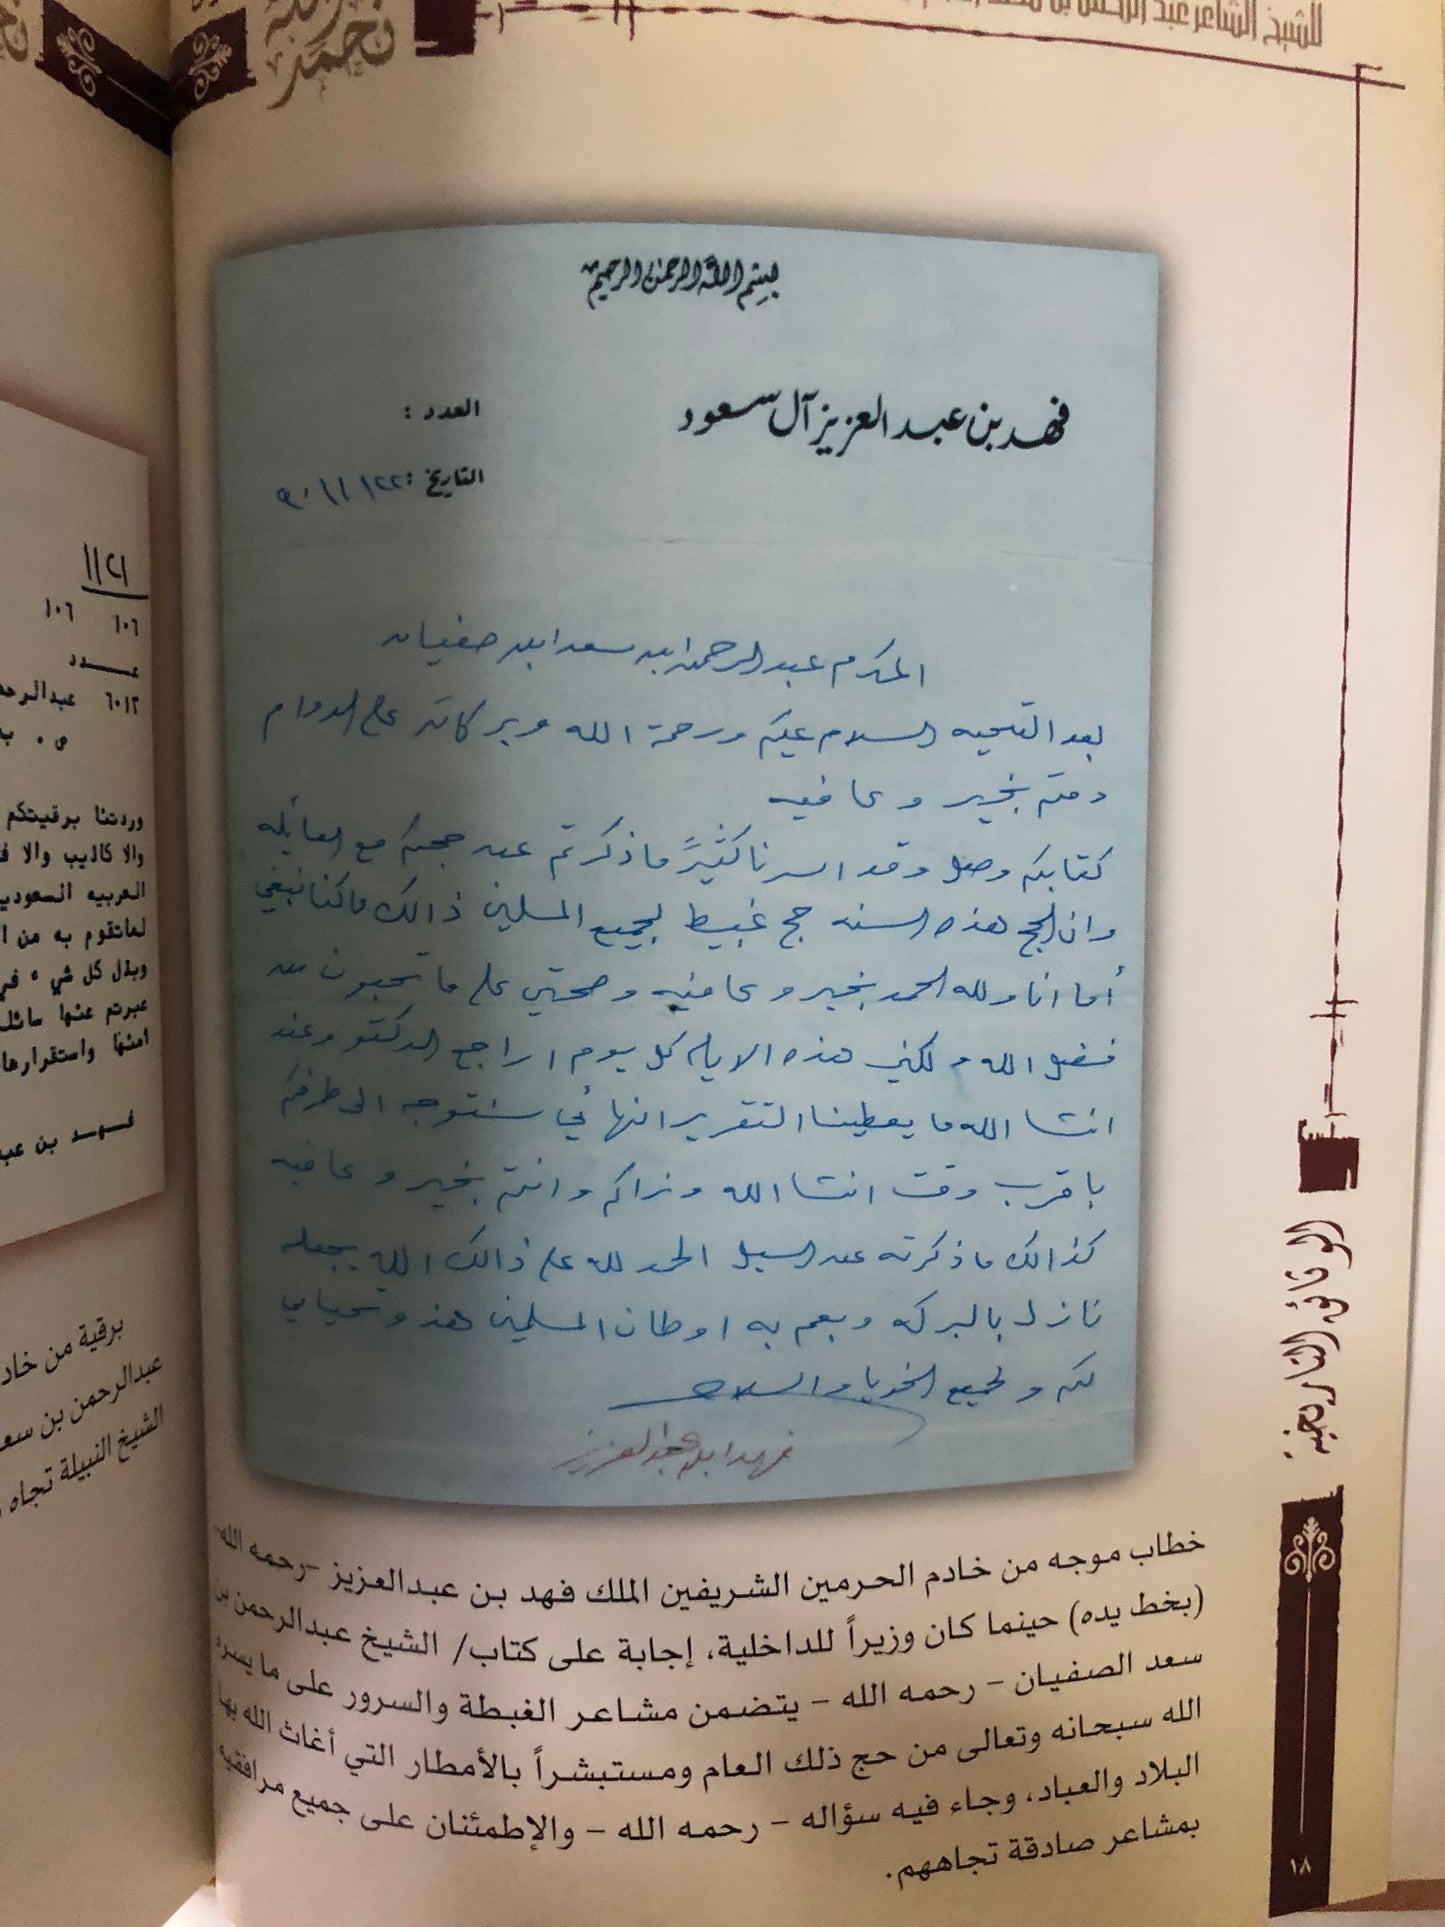 للشيخ الشاعر عبد الرحمن بن
بسم الله الرحمن الرحيم
فهد بن عبد العزيز آل سعود
العدد :
التاريخ : ٢٢/ ١١/ ٩٠
المكرم عبدالرحمن ابن سعد ابن صفيان
بعد التحيه السلام عليكم ورحمة الله وبركاته على الدوام
دمتم بخير وعافيه
كتابكم وصل وقد اسرنا كثيرً ما ذكرتم عن حجكم مع العائله
وان الحج هذه السنه حج غبيط لجميع المسلمين ذالك ماكنا نبغي
أما انا ولله الحمد بخير وعافيه وصحتي على ما تحبون من
فضل الله ولكني هذه الايام كل يوم اراجع الدكتو وعند
انشا الله ما يعطينا التقرير انهائي سنتوجه الى طرفكم
باقرب وقت انشا الله ونراكم وانتم بخير وعافيه
كذالك ما ذكرته عن السيل الحمد لله على ذالك الله يجعله
نازل بالبركه ويعم به اوطان المسلمين هذ وتحياتي
لكم ولجميع الخويا والسلام
فهد ابن عبدالعزيز
خطاب موجه من خادم الحرمين الشريفين الملك فهد بن عبدالعزيز -رحمه الله-
(بخط يده) حينما كان وزيراً للداخلية، إجابة على كتاب/ الشيخ عبدالرحمن بن
سعد الصفيان - رحمه الله - يتضمن مشاعر الغبطة والسرور على ما يسره
الله سبحانه وتعالى من حج ذلك العام ومستبشراً بالأمطار التي أغاث الله بها
البلاد والعباد، وجاء فيه سؤاله - رحمه الله - والإطمئنان على جميع مرافقيه
بمشاعر صادقة تجاههم.
الوثائق التاريخية
١٨
١١٢١
١٠٦ ١٠٦
عدد
٦٠١٢
وردتنا برقيتكم
والا كاذيب والا
العربيه السعودي
لماتقوم به من
وبذل كل شيء في
عبرتم عنها
امنها واستقرارها
فهد بن
برقية من
عبدالرحمن بن
الشيخ النبيلة تجاه